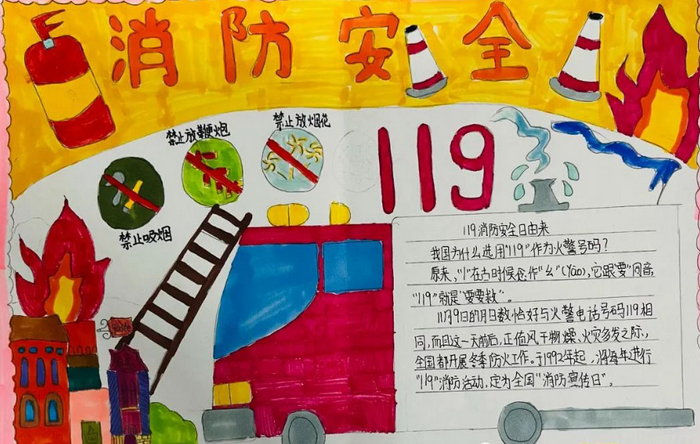 消防安全
禁止放鞭炮
禁止放烟花
禁止吸烟
119
119消防安全日由来
我国为什么选用"119"作为火警号吗?
原来,"1"在古时候念作"幺"(Yāo),它跟"要"同音
"119"就是"要要救"。
11月9日的月日数恰好与火警电话号码119相
同,而且这一天前后,正值风干物燥、火灾多发之际,
全国都开展冬季防火工作。于1992年起,将每年进行
"119"消防活动,定为全国"消防宣传日"。